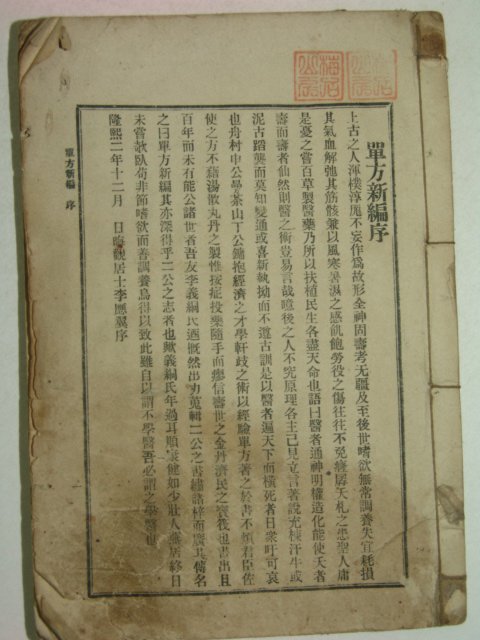 單方新編序
上古之人渾樸淳厖不妄作爲故形全神固壽考无疆及至後世嗜欲無常調養失宜耗損
其氣血解弛其筋骸兼以風寒暑濕之感飢飽勞役之傷往往不免瘥孱夭札之患聖人庸
是憂之嘗百草製醫藥乃所以扶植民生各盡天命也語曰醫者通神明權造化能使夭者
壽而壽者仙然則醫之術豈易言哉噫後之人不究原理各主己見立言著說充棟汗牛或
泥古蹈襲而莫知變通或喜新執拗而不遵古訓是以醫者遍天下而橫死者日衆吁可哀
也舟村申公曼茶山丁公鏞抱經濟之才學軒岐之術以經驗單方著之於書不煩君臣佐
使之方不藉湯散丸丹之製惟按症投藥隨手而瘳信壽世之金丹濟民之寶筏也書出且
百年而未有能公諸世者吾友李義絅氏迺慨然出力蒐輯二公之書繡諸梓而廣其傳名
之曰單方新編其亦深得乎二公之志者也歟義絅氏年過耳順康健如少壯人燕居終日
未嘗欹臥苟非節嗜欲而善調養烏得以致此雖自以謂不學醫吾必謂之學醫也
隆熙二年十二月 日晦觀居士李應翼序
單方新編 序